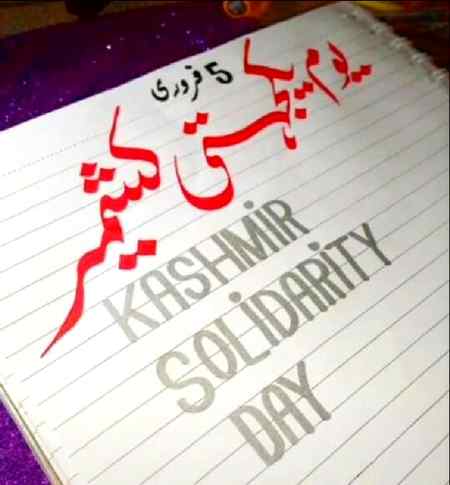 5 فروری
یوم یکجہتی کشمیر
KASHMIR
SOLIDARITY
DAY